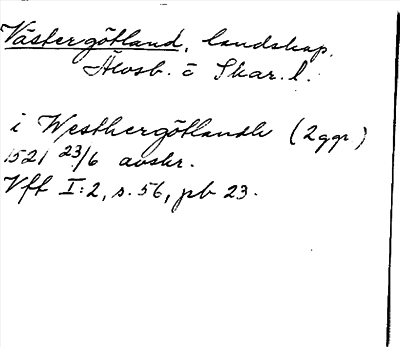 Västergötland, landskap.
Älvsb. o Skar. l.
i Westhergötlandh (2 ggr)
1521 23/6 avskr.
Vff I:2, s. 56, pb 23.